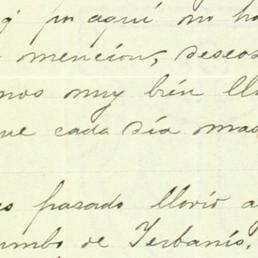 por aquí no ha
mencion, deseos
mos muy bién
que cada día mas
pasado llovió a
rumbo de Yerbanís.